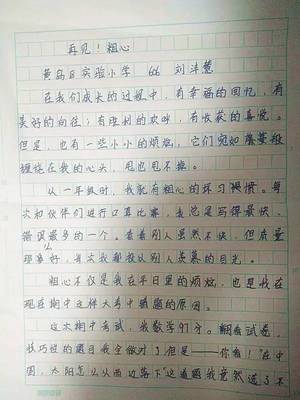 再见！粗心
黄岛区实验小学 66 刘沣慧
在我们成长的过程中，有幸福的回忆，有
美好的向往；有胜利的欢呼，有收获的喜悦。
但是，也有一些小小的烦恼，它们宛如藤蔓般
缠绕在我的心头，甩也甩不掉。
从一年级时，我就有粗心的坏习惯。每
次和伙伴们进行口算比赛，我总是写得最快，
错误最多的一个。看着别人虽然不快，但质量
，每次我都投以别人羡慕的目光。
粗心不仅是我在平日里的烦恼，也是我在
现在期中这样大考中错题的原因。
这次期中考试，我数学97分。翻看试卷，
技巧性的题目我全做对了但是——你看！“在中
国，太阳怎么从西边落下”这道题我竟然选了不